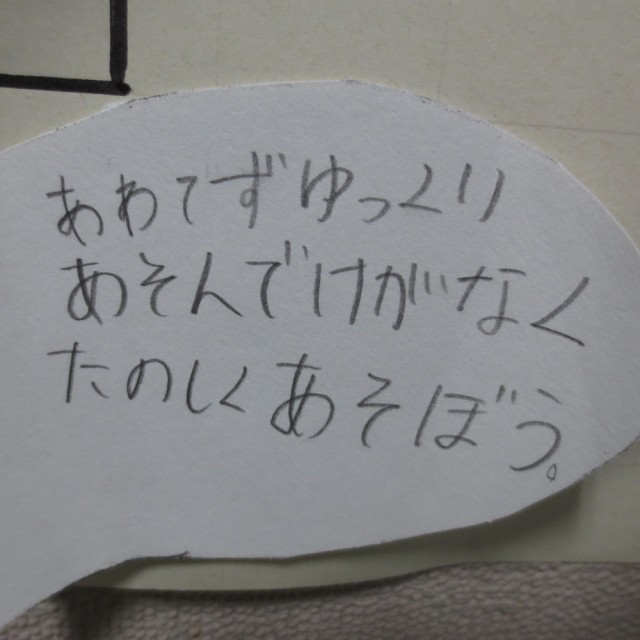 あわてずゆっくり
あそんでけがなく
たのしくあそぼう。